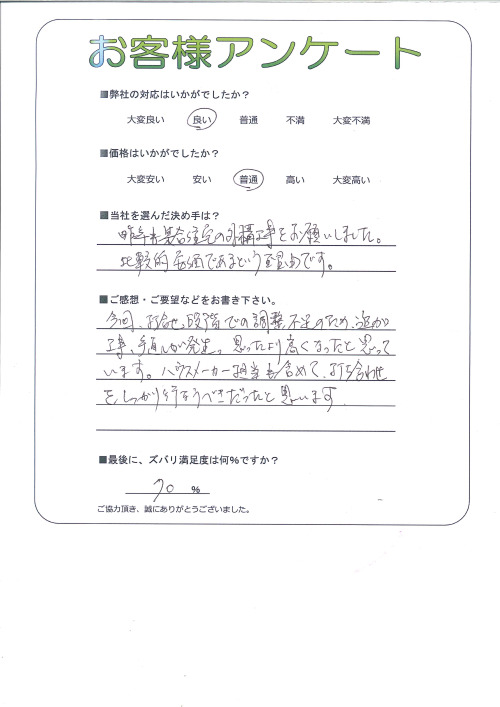 お客様アンケート
■弊社の対応はいかがでしたか？
大変良い 良い 普通 不満 大変不満
■価格はいかがでしたか？
大変安い 安い 普通 高い 大変高い
■当社を選んだ決め手は？
昨年も集合住宅の外構工事をお願いしました。
比較的安価であるという理由です。
■ご感想・ご要望などをお書き下さい。
今回、打合せ段階での調整不足のため、追加
工事、手直しが発生。思ったより高くなったと思って
います。ハウスメーカー担当も含めて、打ち合わせ
をしっかり行うべきだったと思います
■最後に、ズバリ満足度は何%ですか？
70 %
ご協力頂き、誠にありがとうございました。